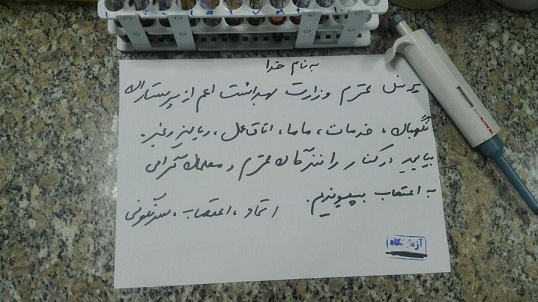 به نام خدا
پرسنل محترم وزارت بهداشت اعم از پرستاران
نگهبان، خدمات، ماما، اتاق عمل، دیالیز و غیره
بیایید در کنار رانندگان محترم و معلمان گرامی
به اعتصاب بپیوندیم. اتحاد، اعتصاب، سرنگونی
آزمایشگاه